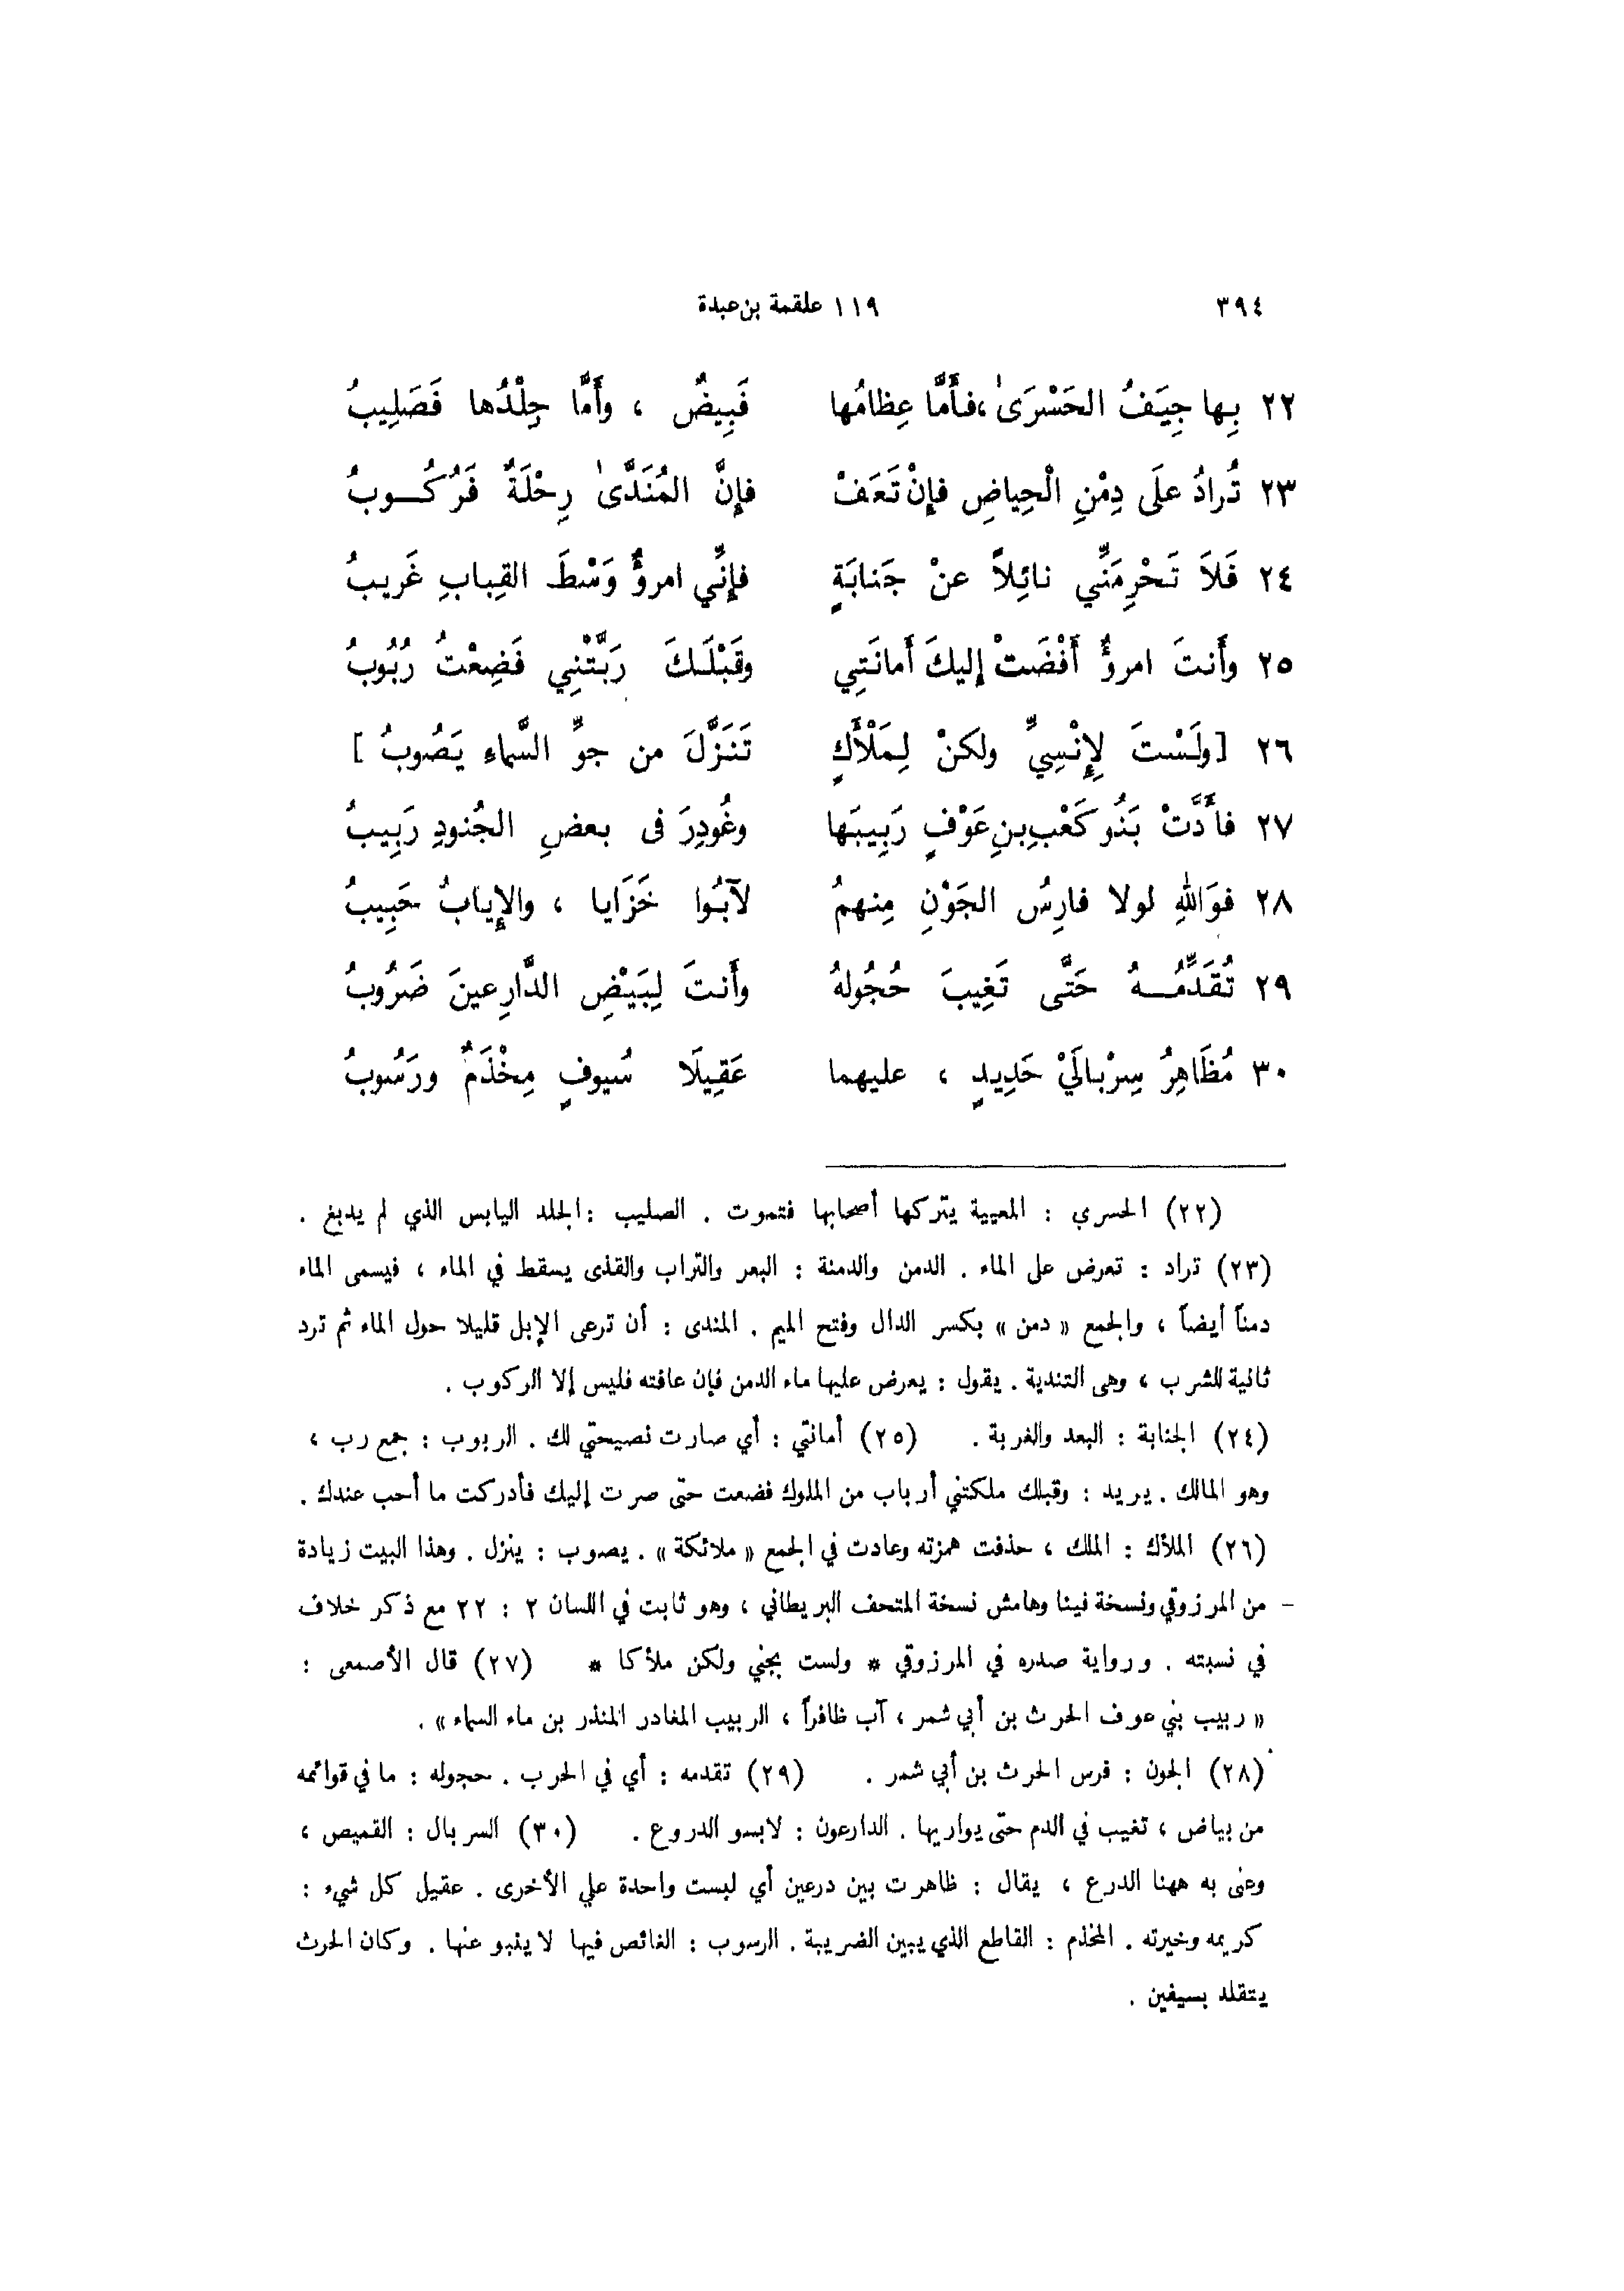 ٣٩٤ ١١٩ علقمة بن عبدة
٢٢ بِها جِيَفُ الحَسْرَىٰ ،فأَمَّا عِظامُها فَبِيضٌ ، وأَمَّا جِلْدُها فَصَلِيبُ
٢٣ تُرادُ علَى دِمْنِ الْحِياضِ فإِنْ تَعَفْ فإِنَّ المُنَدَّىٰ رِحْلَةٌ فَرُكُـوبُ
٢٤ فَلاَ تَحْرِمَنِّي نائِلاً عنْ جَنابَةٍ فإِنِّي امرؤٌ وَسْطَ القِبابِ غَريبُ
٢٥ وأَنتَ امرؤٌ أَفْضَتْ إليكَ أَمانَتِي وقَبْلَـكَ رَبَّتْنِي فَضِعْتُ رُبُوبُ
٢٦ [ولَسْتَ لِإِنْسِيٍّ ولكنْ لِمَلْأَكٍ تَنَزَّلَ من جوِّ السَّماءِ يَصُوبُ ]
٢٧ فأَدَّتْ بَنُو كَعْبِ بنِ عَوْفٍ رَبِيبَها وغُودِرَ فى بعضِ الجُنودِ رَبِيبُ
٢٨ فوَاللهِ لولا فارِسُ الجَوْنِ مِنهمُ لآبُوا خَزَايا ، والإِيابُ حَبِيبُ
٢٩ تُقَدِّمُـهُ حَتَّى تَغِيبَ حُجُولهُ وأَنتَ لِبَيْضِ الدَّارِعينَ ضَرُوبُ
٣٠ مُظَاهِرُ سِرْبالَيْ حَدِيدٍ ، عليهما عَقِيلَا سُيوفٍ مِخْذَمٌ ورَسُوبُ
(٢٢) الحسري : المعيية يتركها أصحابها فتموت . الصليب :الجلد اليابس الذي لم يدبغ .
(٢٣) تراد : تعرض على الماء . الدمن والدمنة : البعر والتراب والقذى يسقط في الماء ، فيسمى الماء
دمناً أيضاً ، والجمع « دمن » بكسر الدال وفتح الميم . المندى : أن ترعى الإبل قليلا حول الماء ثم ترد
ثانية للشرب ، وهى التندية . يقول : يعرض عليها ماء الدمن فإن عافته فليس إلا الركوب .
(٢٤) الجنابة : البعد والغربة . (٢٥) أمانتي : أي صارت نصيحتي لك . الربوب : جمع رب ،
وهو المالك . يريد : وقبلك ملكتني أرباب من الملوك فضعت حتى صرت إليك فأدركت ما أحب عندك .
(٢٦) الملأك : الملك ، حذفت همزته وعادت في الجمع « ملائكة » . يصوب : ينزل . وهذا البيت زيادة
من المرزوقي ونسخة فينا وهامش نسخة المتحف البريطاني ، وهو ثابت في اللسان ٢ : ٢٢ مع ذكر خلاف
في نسبته . ورواية صدره في المرزوقي * ولست بجني ولكن ملأكا * (٢٧) قال الأصمعى :
« ربيب بني عوف الحرث بن أبي شمر ، آب ظافراً ، الربيب المغادر المنذر بن ماء السماء » .
(٢٨) الجون : فرس الحرث بن أبي شمر . (٢٩) تقدمه : أي في الحرب . حجوله : ما في قوائمه
من بياض ، تغيب في الدم حتى يواريها . الدارعون : لابسو الدروع . (٣٠) السربال : القميص ،
وعنى به ههنا الدرع ، يقال : ظاهرت بين درعين أي لبست واحدة علي الأخرى . عقيل كل شيء :
كريمه وخيرته . المخذم : القاطع الذي يبين الضريبة . الرسوب : الغائص فيها لا ينبو عنها . وكان الحرث
يتقلد بسيفين .